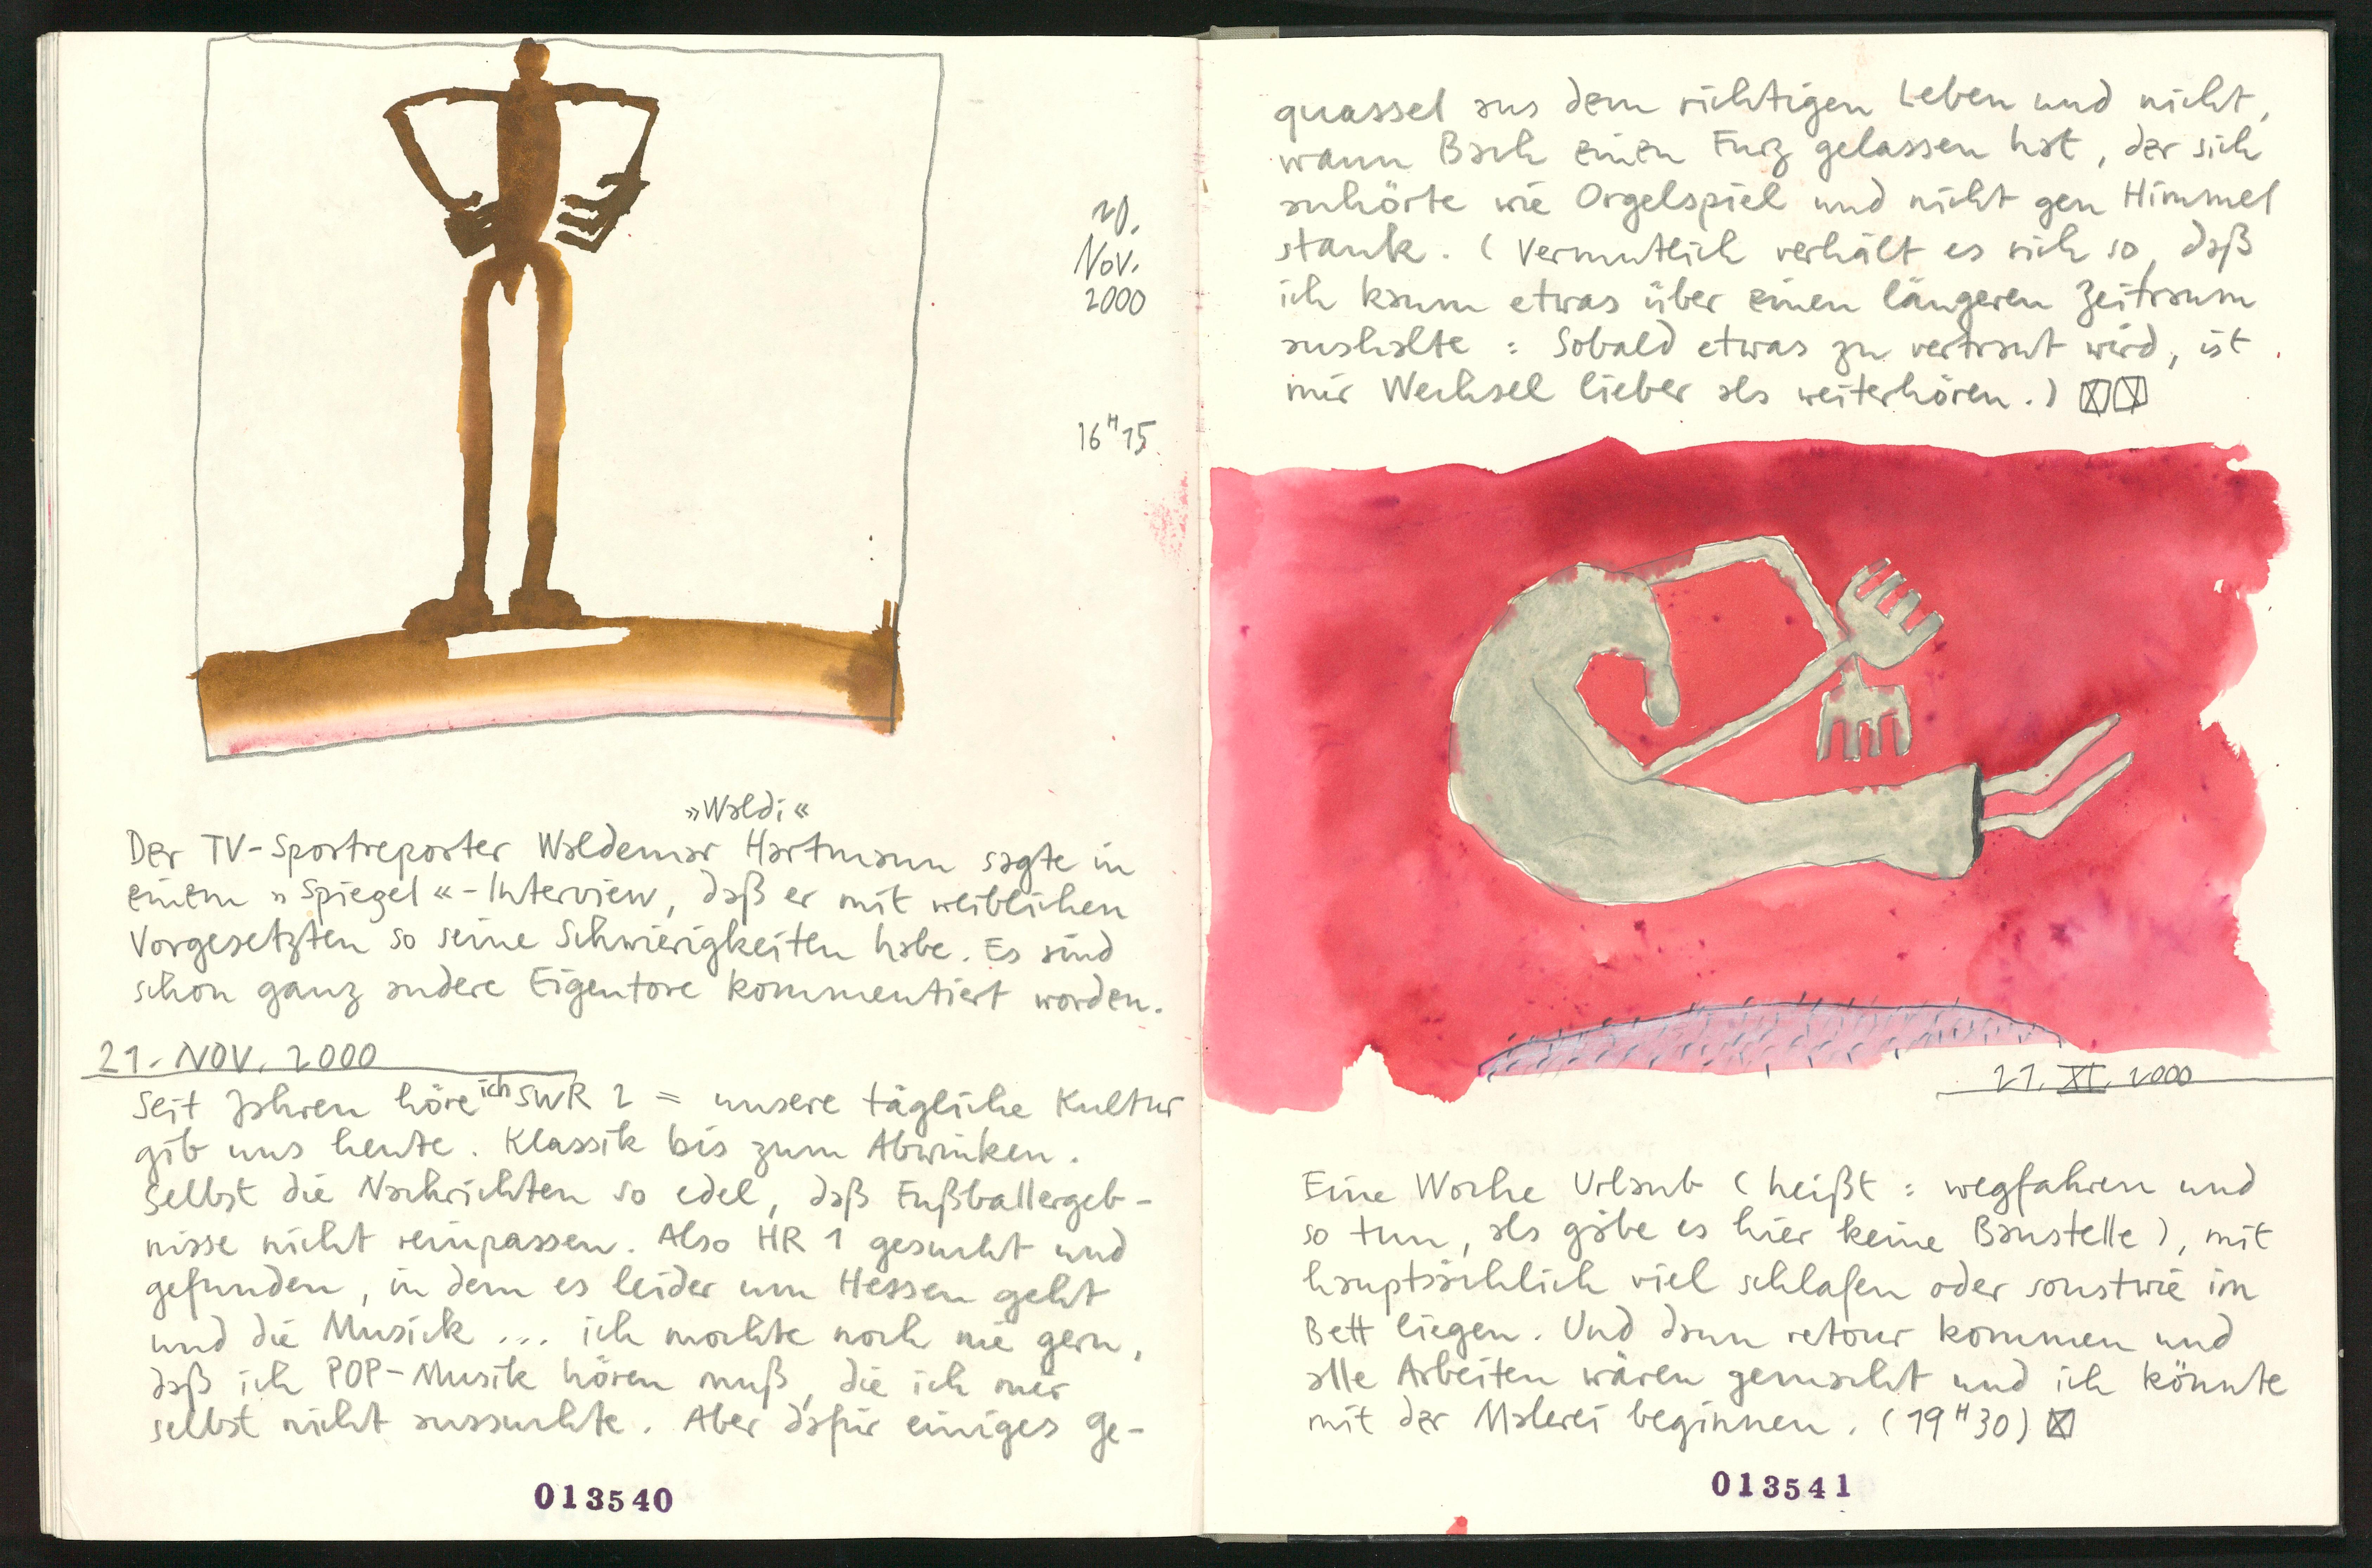 20.
Nov.
2000
16ᴴ15
»Waldi«
Der TV-Sportreporter Waldemar Hartmann sagte in
einem »Spiegel«-Interview, daß er mit weiblichen
Vorgesetzten so seine Schwierigkeiten habe. Es sind
schon ganz andere Eigentore kommentiert worden.
21. NOV. 2000
Seit Jahren höre ich SWR 2 = unsere tägliche Kultur
gib uns heute. Klassik bis zum Abwinken.
Selbst die Nachrichten so edel, daß Fußballergeb-
nisse nicht reinpassen. Also HR 1 gesucht und
gefunden, in dem es leider um Hessen geht
und die Musick ... ich mochte noch nie gern,
daß ich POP-Musik hören muß, die ich mir
selbst nicht aussuchte. Aber dafür einiges Ge-
013540
quassel aus dem richtigen Leben und nicht,
wann Bach einen Furz gelassen hat, der sich
anhörte wie Orgelspiel und nicht gen Himmel
stank. (Vermutlich verhält es sich so, daß
ich kaum etwas über einen längeren Zeitraum
aushalte: Sobald etwas zu vertraut wird, ist
mir Wechsel lieber als weiterhören.)
21. XI. 2000
Eine Woche Urlaub (heißt: wegfahren und
so tun, als gäbe es hier keine Baustelle), mit
hauptsächlich viel schlafen oder sonstwie im
Bett liegen. Und dann retour kommen und
alle Arbeiten wären gemacht und ich könnte
mit der Malerei beginnen. (19ᴴ30)
013541